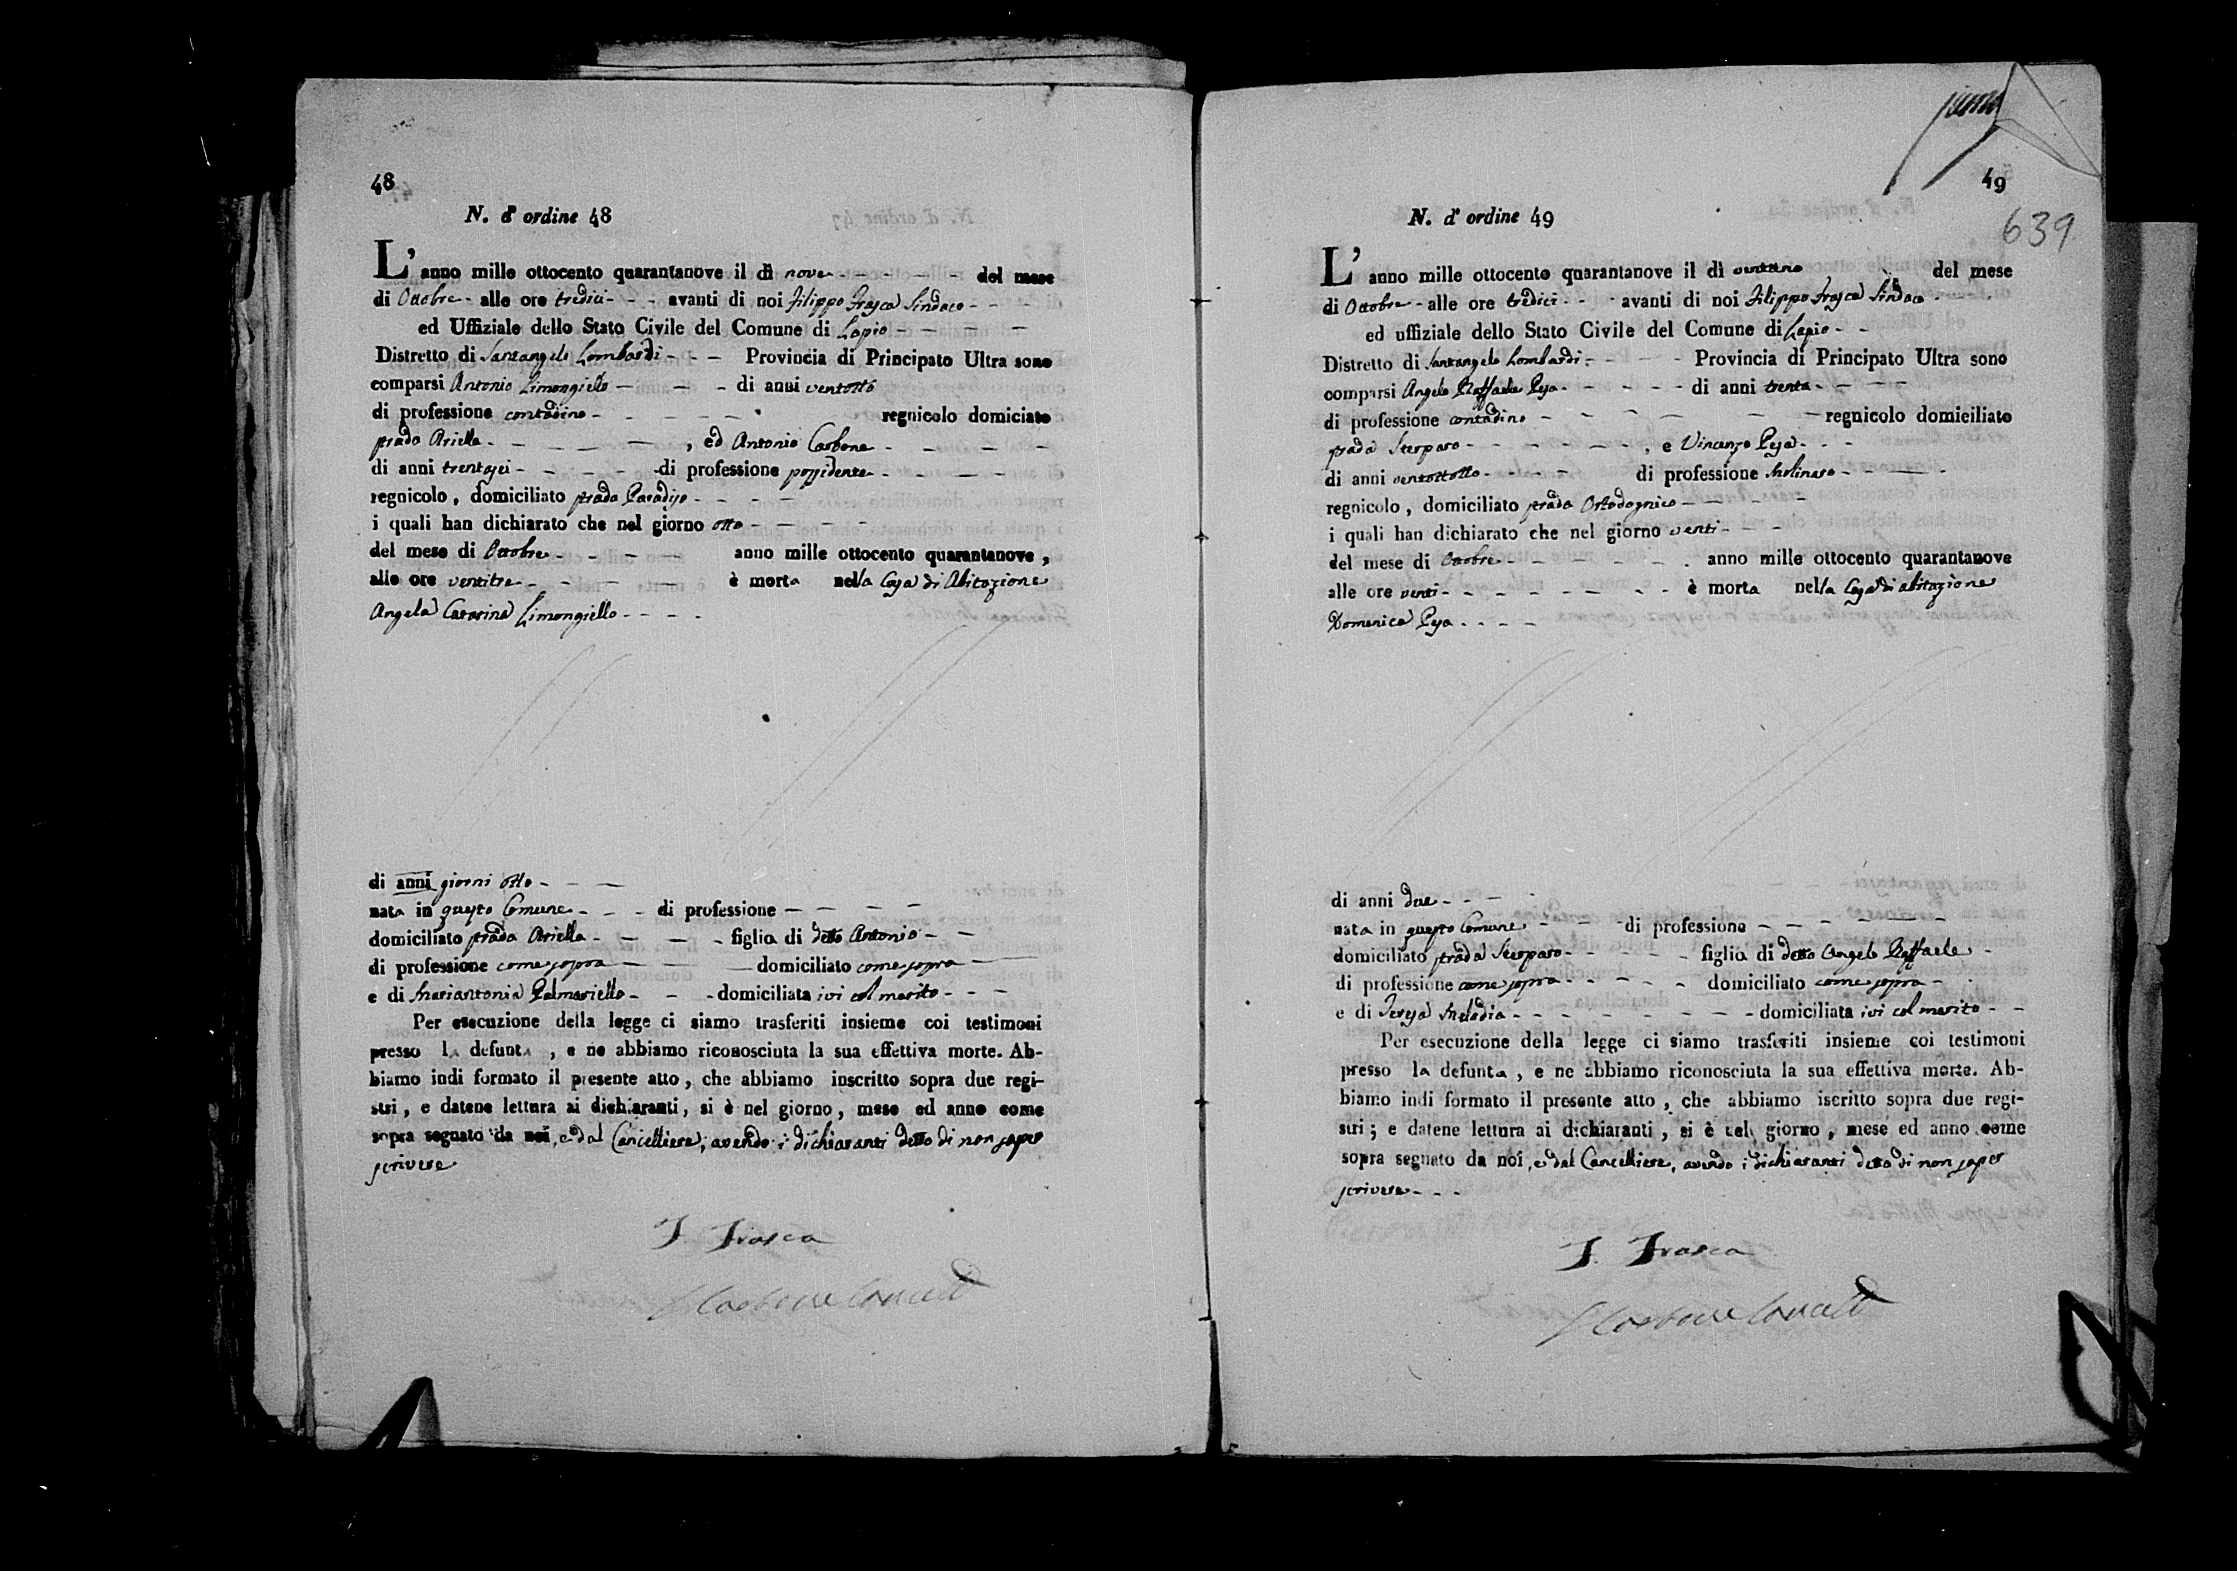 48
N. d' ordine 48
L' anno mille ottocento quarantanove il dì nove del mese
di Ottobre alle ore tredici avanti di noi Filippo Frasca Sindaco
ed Uffiziale dello Stato Civile del Comune di Lapio
Distretto di Santangelo Lombardi Provincia di Principato Ultra sono
comparsi Antonio Limongiello di anni ventotto
di professione contadino regnicolo domiciato
strada Ariella , ed Antonio Carbone
di anni trentasei di professione possidente
regnicolo, domiciliato strada Paradiso
i quali han dichiarato che nel giorno otto
del mese di Ottobre anno mille ottocento quarantanove,
alle ore ventitre è morta nella Casa di Abitazione
Angela Catarina Limongiello
di anni giorni otto
nata in questo Comune di professione
domiciliato strada Ariella figlia di detto Antonio
di professione come sopra domiciliato come sopra
e di Mariantonia Palmariello domiciliata ivi col marito
Per esecuzione della legge ci siamo trasferiti insieme coi testimoni
presso la defunta, e ne abbiamo riconosciuta la sua effettiva morte. Ab-
biamo indi formato il presente atto, che abbiamo inscritto sopra due regi-
stri, e datene lettura ai dichiaranti, si è nel giorno, mese ed anno come
sopra segnato da noi, e dal Cancelliere, avendo i dichiaranti detto di non saper
scrivere
F. Frasca
49
639
N. d' ordine 49
L' anno mille ottocento quarantanove il dì ventuno del mese
di Ottobre alle ore tredici avanti di noi Filippo Frasca Sindaco
ed uffiziale dello Stato Civile del Comune di Lapio
Distretto di Santangelo Lombardi Provincia di Principato Ultra sono
comparsi Angelo Raffaele Pesa di anni trenta
di professione contadino regnicolo domiciliato
strada Sterparo , e Vincenzo Pesa
di anni ventottotto di professione Molinaro
regnicolo, domiciliato strada Ortodognico
i quali han dichiarato che nel giorno venti
del mese di Ottobre anno mille ottocento quarantanove
alle ore venti è morta nella Casa di abitazione
Domenica Pesa
di anni due
nata in questo Comune di professione
domiciliato strada Sterparo figlia di detto Angelo Raffaele
di professione come sopra domiciliato come sopra
e di Teresa Meladia domiciliata ivi col marito
Per esecuzione della legge ci siamo trasferiti insieme coi testimoni
presso la defunta, e ne abbiamo riconosciuta la sua effettiva morte. Ab-
biamo indi formato il presente atto, che abbiamo iscritto sopra due regi-
stri; e datene lettura ai dichiaranti, si è nel giorno, mese ed anno come
sopra segnato da noi, e dal Cancelliere, avendo i dichiaranti detto di non saper
scrivere
F. Frasca